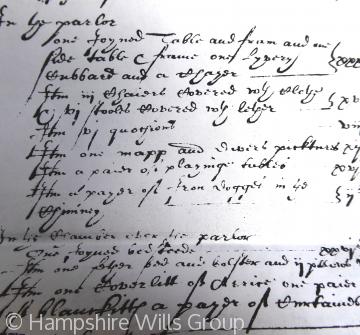 In the parlor
one Joyned Table and fram and one
side table & frame one livery
Cubbard and a Chayer
Itm iij Chaiers Covered wth
& vj stooles Covered wth lether
Itm vj quoshions
Itm one mapp and Divers pickters
Itm a paier of playinge tables
Itm a payer of Iron Dogges in the
Chimney
In the Chamber over the parlor
One Joyned bedsteede
Itm one fether bed one bolster and ij
Itm one Coverlitt of Arrice one paier
of blancketts a payer of Curtaines
© Hampshire Wills Group